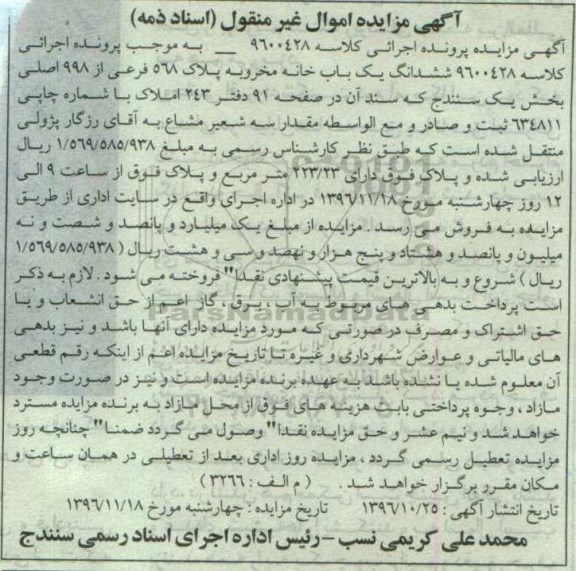 آگهی مزایده اموال غیر منقول (اسناد ذمه)
آگهی مزایده پرونده اجرائی کلاسه ۹۶۰۰۴۲۸ __ به موجب پرونده اجرائی
کلاسه ۹۶۰۰۴۲۸ ششدانگ یک باب خانه مخروبه پلاک ۵۶۸ فرعی از ۹۹۸ اصلی
بخش یک سنندج که سند آن در صفحه ۹۱ دفتر ۲۴۳ املاک با شماره چاپی
۶۳۴۸۱۱ ثبت و صادر و مع الواسطه مقدار سه شعیر مشاع به آقای رزگار پژولی
منتقل شده است که طبق نظر کارشناس رسمی به مبلغ ۱/۵۶۹/۵۸۵/۹۳۸ ریال
ارزیابی شده و پلاک فوق دارای ۲۲۳/۲۳ متر مربع و پلاک فوق از ساعت ۹ الی
۱۲ روز چهارشنبه مورخ ۱۳۹۶/۱۱/۱۸ در اداره اجرای واقع در سایت اداری از طریق
مزایده به فروش می رسد . مزایده از مبلغ یک میلیارد و پانصد و شصت و نه
میلیون و پانصد و هشتاد و پنج هزار و نهصد و سی و هشت ریال (۱/۵۶۹/۵۸۵/۹۳۸
ریال ) شروع و به بالاترین قیمت پیشنهادی نقدا" فروخته می شود . لازم به ذکر
است پرداخت بدهی های مربوط به آب ، برق ، گاز اعم از حق انشعاب و یا
حق اشتراک و مصرف در صورتی که مورد مزایده دارای آنها باشد و نیز بدهی
های مالیاتی و عوارض شهرداری و غیره تا تاریخ مزایده اعم از اینکه رقم قطعی
آن معلوم شده یا نشده باشد به عهده برنده مزایده است و نیز در صورت وجود
مازاد ، وجوه پرداختی بابت هزینه های فوق از محل مازاد به برنده مزایده مسترد
خواهد شد و نیم عشر و حق مزایده نقدا" وصول می گردد ضمنا" چنانچه روز
مزایده تعطیل رسمی گردد ، مزایده روز اداری بعد از تعطیلی در همان ساعت و
مکان مقرر برگزار خواهد شد . ( م الف : ۳۲۶۶ )
تاریخ انتشار آگهی : ۱۳۹۶/۱۰/۲۵ تاریخ مزایده : چهارشنبه مورخ ۱۳۹۶/۱۱/۱۸
محمد علی کریمی نسب – رئیس اداره اجرای اسناد رسمی سنندج
ParsNamadData